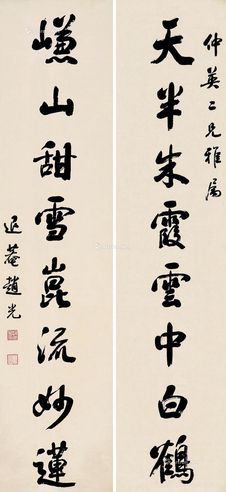 仲英二兄雅屬
天半朱霞雲中白鶴
嵰山甜雪崑流妙蓮
退菴趙光